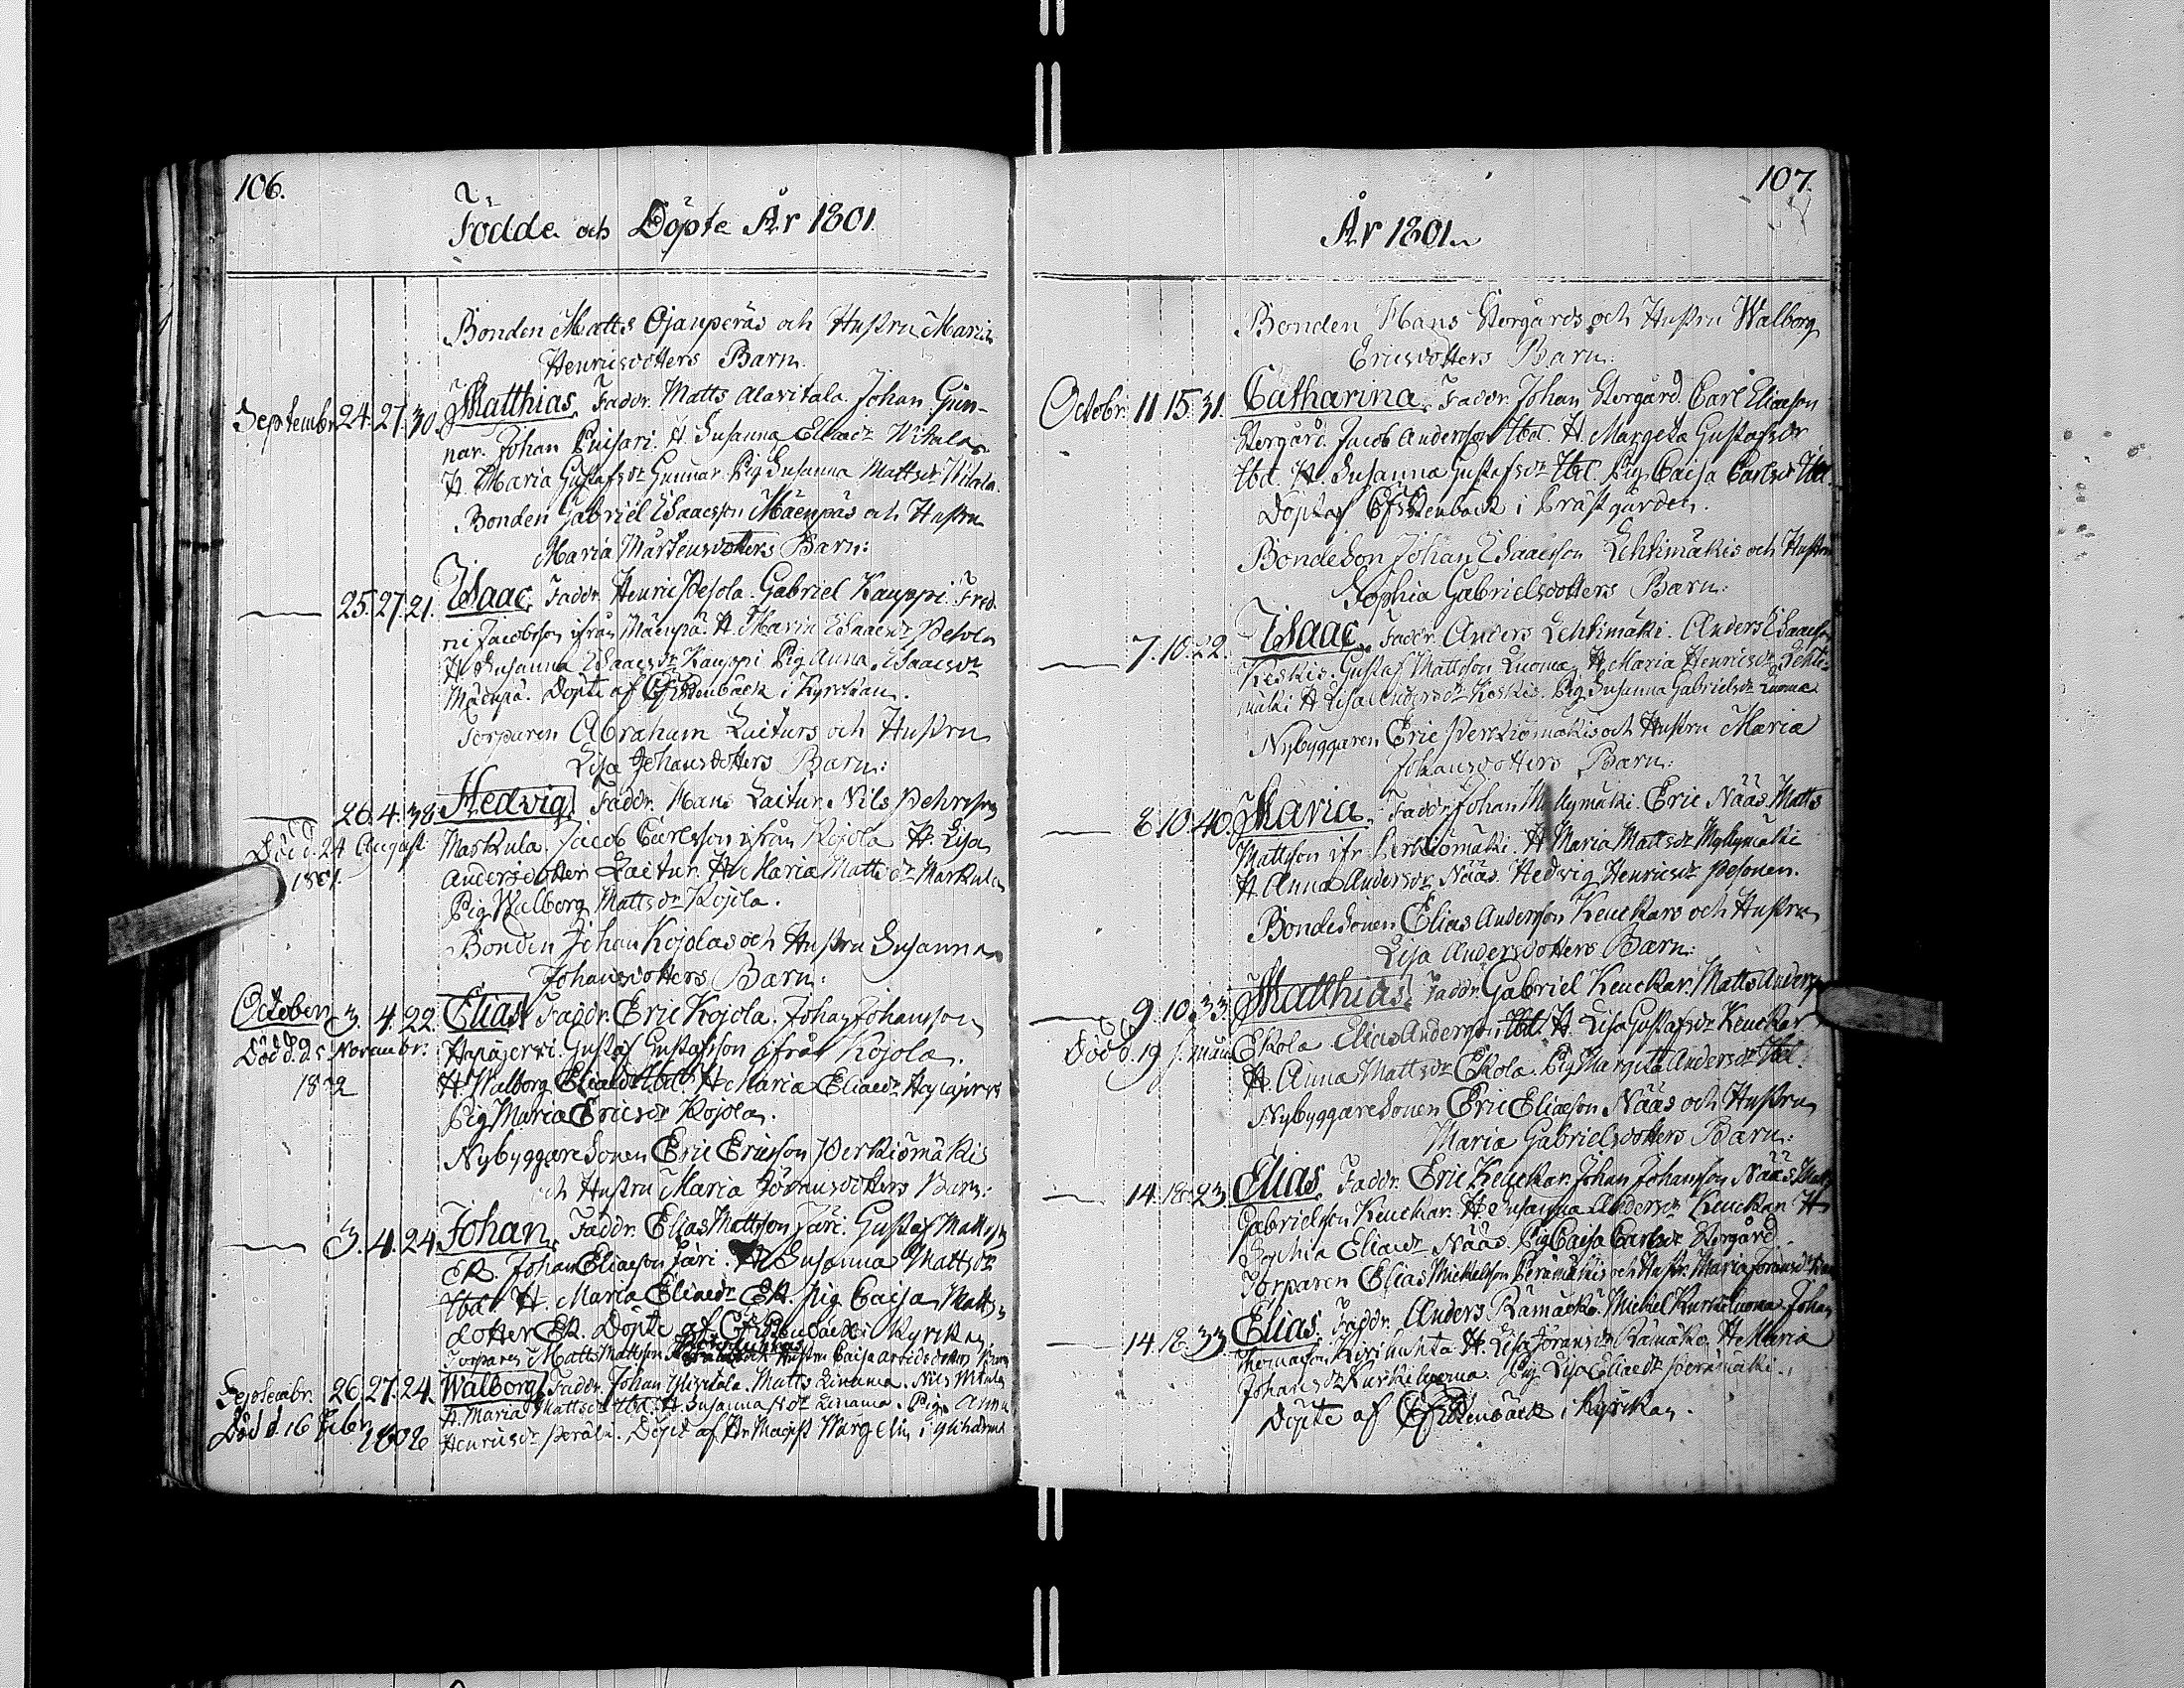 106.
Födde och Döpte År 1801.
Bonden Matts Ojanperäs och Hustru Maria
Henricsdotters Barn.
Septembr. 24. 27. 30. Matthias. Faddr. Matts Alavitala. Johan Gun-
nar. Johan Puisari. H. Susanna Eliaedr Witala
H. Maria Gustafsdr Gunnar. Pig. Susanna Mattsdr Witala.
Bonden Gabriel Isaacsson Mäenpäs och Hustru
Maria Mårtensdotters Barn:
25. 27. 21. Isaac. Faddr. Henric Pesola. Gabriel Kauppi. Fred-
ric Jacobsson ifrån Mäenpä. H. Maria Isaacsdr Pesola
H. Susanna Isaacsdr Kauppi Pig Anna Isaacsdr
Mäenpä. Döpte af Estenbäck i Kyrckan.
Torparen Abraham Laiturs och Hustru
Lisa Johansdotters Barn:
26. 4. 38. Hedvig. Faddr. Hans Laitur. Nils Pehrsson
Död d. 24 August. Maskula. Jacob Carlsson ifrån Kojola H. Lisa
Andersdotter Laitur. H. Maria Mattsdr Markula
Pig Walborg Mattsdr Kojola.
Bonden Johan Kojolas och Hustru Susanna
Johansdotters Barn:
October 3. 4. 22. Elias. Faddr. Eric Kojola. Johan Johansson
Död d. 25 Novembr. Hapajervi. Gustaf Gustafsson ifrån Kojola.
H. Walborg Eliaedr Ibd. H. Maria Eliaedr Hapajervi
Pig Maria Ericsdr Kojola.
Nybyggare Sonen Eric Ericsson Perkiömäkis
och Hustru Maria Göransdotters Barn:
3. 4. 24. Johan. Faddr. Elias Mattsson Järi. Gustaf Mattsson
Ek. Johan Eliaeson Järi. H. Susanna Mattsdr
Ibd. H. Maria Eliaedr Ek. Pig Caisa Matts-
dotter Ek. Döpte af Estenbäck i Kyrckan
Torparen Matts Mattsson Hustru Caisa
Septembr. 26. 27. 24. Walborg. Faddr. Johan Matts Linama. Nils
Död d. 16 Febr. H. Maria Mattsdr Ibd. H. Susanna Linama. Pig. Anna
1802 Henricsdr Perälä. Döpt af Hr Magist Wargelin i
107.
År 1801.
Bonden Hans Storgårds och Hustru Walborg
Ericsdotters Barn:
Octobr. 11. 15. 31. Catharina. Faddr. Johan Storgård Carl Eliaeson
Storgård. Jacob Andersson Ibd. H. Margeta Gustafsdr
Ibd. H. Susanna Gustafsdr Ibd. Pig Caisa Carlsdr Ibd.
Döpt af Estenbäck i Prästgården.
Bondeson Johan Isaacson Lehtimäkis och Hustru
Sophia Gabrielsdotters Barn:
7. 10. 22. Isaac. Faddr. Anders Lehtimäki. Anders Isaacson
Keskis. Gustaf Mattsson Luoma. H. Maria Henricsdr Lehti-
mäki H. Lisa Andersdr Keskis. Pig Susanna Gabrielsdr Luoma
Nybyggaren Eric Perkiömäkis och Hustru Maria
Johansdotters Barn:
8. 10. 40. Maria. Faddr. Johan Myllymäki. Eric Nääs Matts
Mattsson ifr. Perkiömäki. H. Maria Mattsdr Myllymäki
H. Anna Andersdr Nääs. Hedvig Henricsdr Pesonen.
Bondesonen Elias Andersson Keuckars och Hustru
Lisa Andersdotters Barn:
9. 10. 33. Matthias. Faddr. Gabriel Keuckar. Matts Anderss
Död d. 19 Ekola. Elias Andersson Ibd. H. Lisa Gustafsdr Keuckar
H. Anna Mattsdr Ekola. Pig Margeta Andersdr Ibd.
Nybyggare Sonen Eric Eliaeson Nääs och Hustru
Maria Gabrielsdotters Barn:
14. 18. 23. Elias. Faddr. Eric Keuckar. Johan Johansson Nääs Matts
Gabrielsson Keuckar. H. Susanna Andersdr Keuckar H
Sophia Eliaedr Nääs. Pig Caisa Carlsdr Storgård.
Torparen Elias Mickelsson Perämäkis och Hustr. Maria
14. 18. 33. Elias. Faddr. Anders Rämäckö. Mickel Kurkiluoma. Johan
Thomasson H. Lisa Göransdr Rämäkö. H. Maria
Johansdr Kurkiluoma. Pig Lisa Eliaedr Perämäki.
Döpte af Estenbäck i Kyrckan.